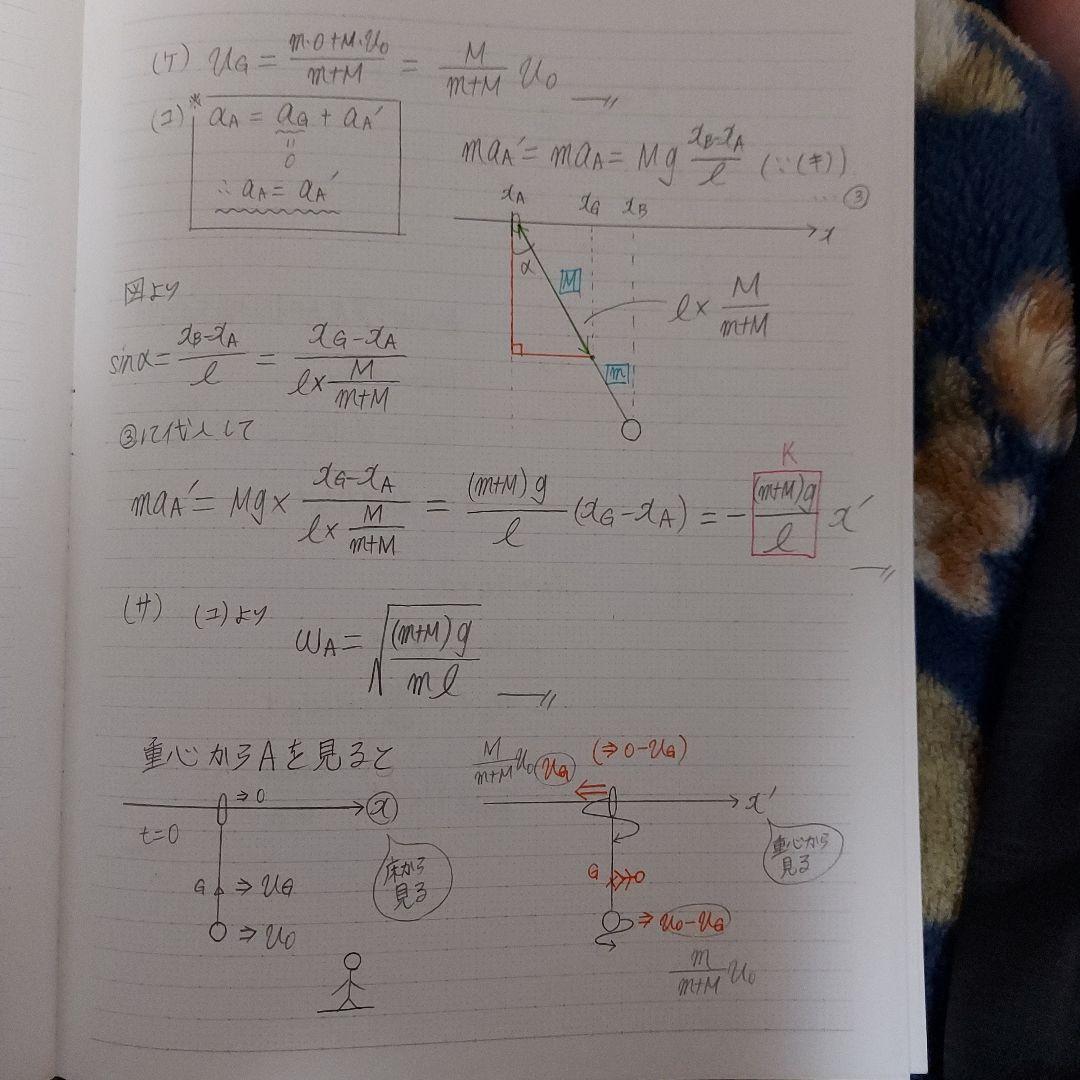 (ケ) u_G = (m・0+M・u_0)/(m+M) = M/(m+M) u_0
(コ) * a_A = a_G + a_A'
〃
0
∴ a_A = a_A'
ma_A' = ma_A = Mg (x_B-x_A)/l (∵(キ))
… ③
x_A x_G x_B
x
α
M
l× M/(m+M)
m
図より
sinα = (x_B-x_A)/l = (x_G-x_A)/(l×M/(m+M))
③に代入して
K
ma_A' = Mg× (x_G-x_A)/(l×M/(m+M)) = (m+M)g/l (x_G-x_A) = - (m+M)g/l x'
(サ) (コ)より
ω_A = √((m+M)g/(ml))
重心からAを見ると
⇒0
x
t=0
床から
見る
G ⇒ u_G
⇒ u_0
M/(m+M) u_0 (u_G) (⇒ 0-u_G)
x'
重心から
見る
G 0
⇒ u_0-u_G
m/(m+M) u_0